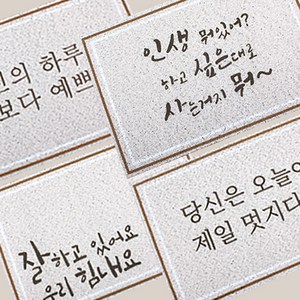 인의 하루
보다 예쁘
인생 뭐있어?
하고 싶은대로
사는거지 뭐~
잘하고 있어요
우리 힘내요
당신은 오늘이
제일 멋지다